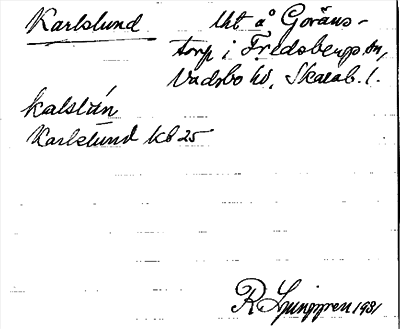 Karlslund lht å Görans-
torp i Fredsbergs sn,
Vadsbo hd, Skarab. l.
kalslún
Karlslund kb 25
R Ljunggren 1931